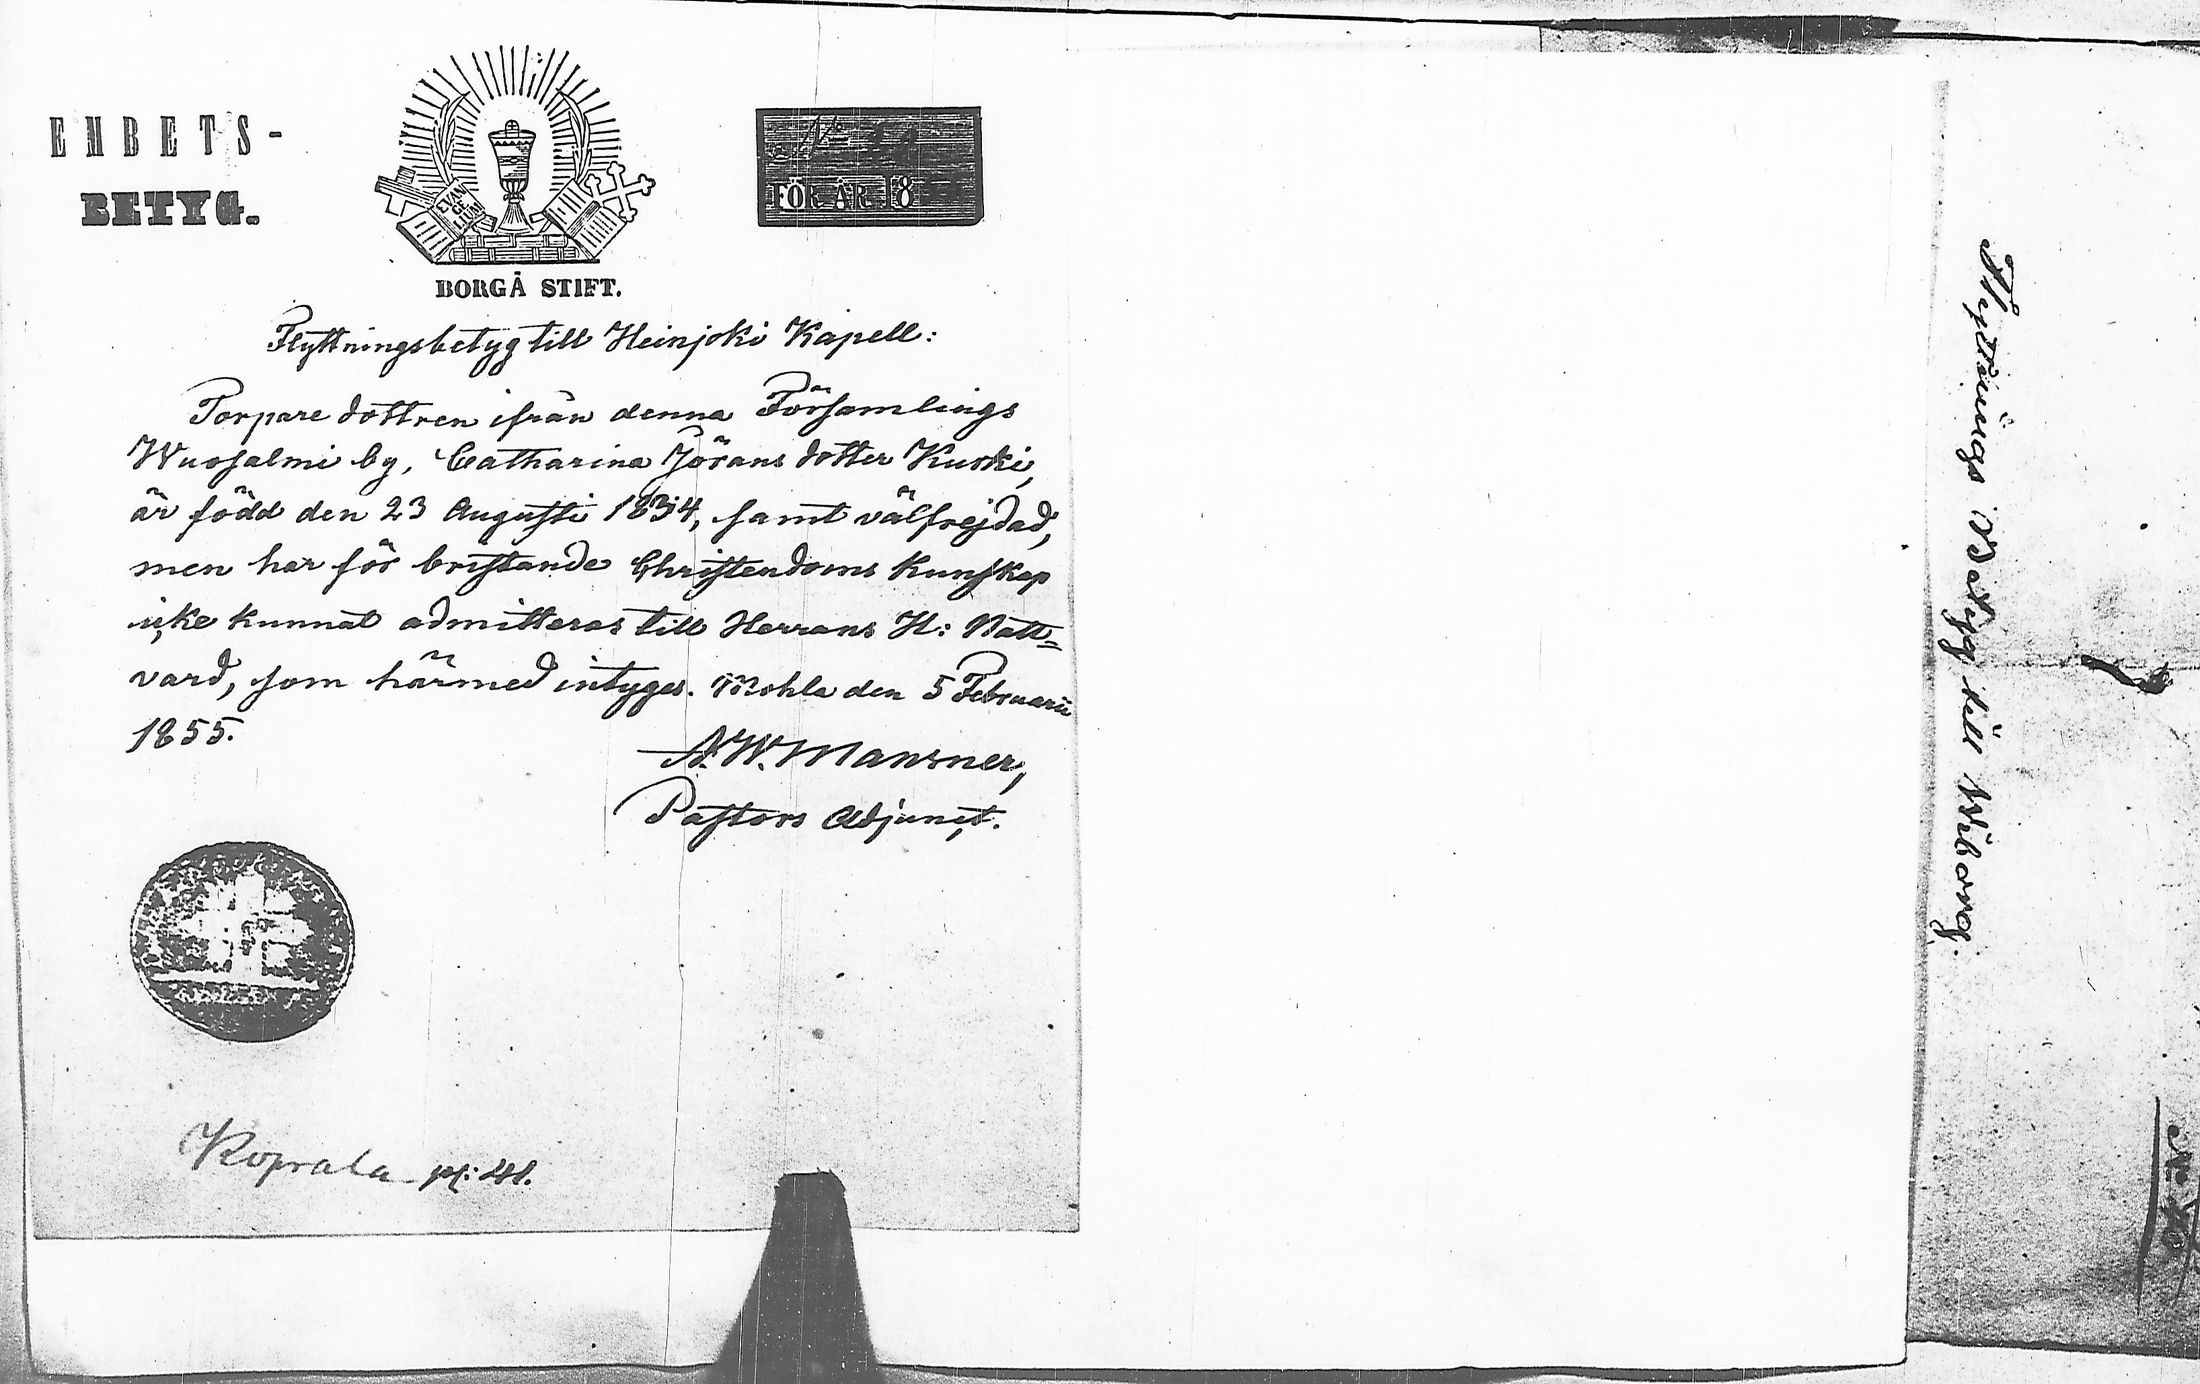 EMBETS-
BETYG.
EVAN
GE
LIUM
BORGÅ STIFT.
FÖR ÅR 18
Flyttningsbetyg till Heinjoki Kapell:
Torpare dottren ifrån denna Församlings
Wuosalmi by, Catharina Jörans dotter Kuski,
är född den 23 Augusti 1834, samt välfrejdad,
men har för bristande Christendoms Kunskap
icke kunnat admitteras till Herrans H: Natt=
vard, som härmed intygas. Mohla den 5 Februarii
1855.
N. W. Mansner,
Pastors Adjunct.
Koprala pg: 41.
Flyttnings Betyg till Wiborg.